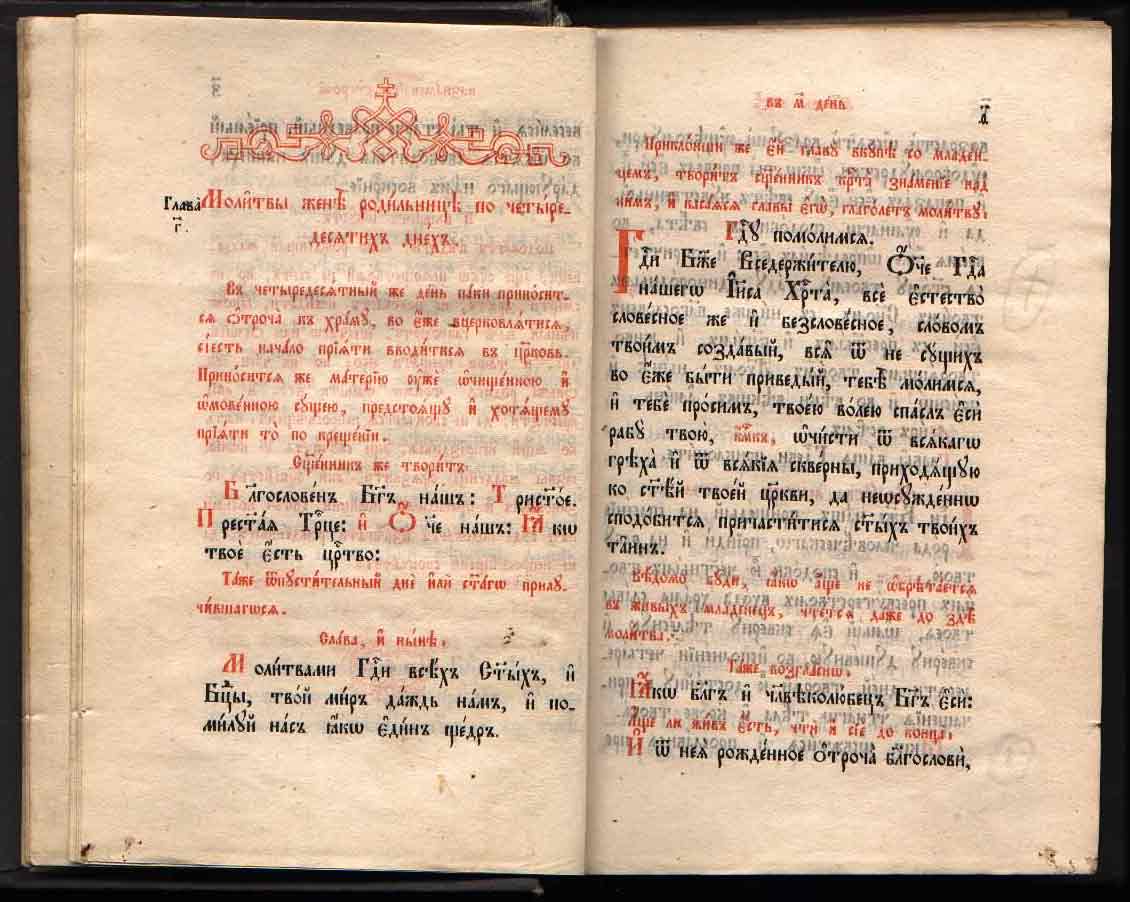 Глава̀ г҃.
Моли̑твы женѣ̀ роди́льницѣ по четыре-
десѧ́тихъ дне́хъ.
Въ четыредесѧ́тный же де́нь па́ки прино́сит-
сѧ ѻ҆троча̀ къ хра́му, во є҆́же вцерковлѧ́тисѧ,
сіе́сть нача́ло прїѧ́ти вводи́тисѧ въ цр҃ковь.
Прино́ситсѧ же ма́терїю оу҆жѐ ѡ҆чище́нною и҆
ѡ҆мове́нною су́щею, предстоѧ́щу и҆ хотѧ́щему
прїѧ́ти то̀ по креще́нїи.
Сщ҃е́нникъ же твори́тъ
Бл҃гослове́нъ бг҃ъ на́шъ: Трист҃о́е.
Прест҃а́ѧ трⷪ҇це: и҆ Ѻ҆́ч҃е на́шъ: Ꙗ҆́кѡ
твоѐ є҆́сть црⷭ҇тво:
Та́же ѿпусти́тельный днѐ и҆лѝ ст҃а́гѡ прилу-
чи́вшагѡсѧ.
Сла́ва, и҆ ны́нѣ,
Моли́твами гдⷭ҇и всѣ́хъ ст҃ы́хъ, и҆
бцⷣы, тво́й ми́ръ да́ждь на́мъ, и҆ по-
ми́луй на́съ ꙗ҆́кѡ є҆ди́нъ ще́дръ.
въ м҃ де́нь. д҃
Прикло́ньши же є҆́й главу̀ вку́пѣ со младе́н-
цемъ, твори́тъ сщ҃е́нникъ крⷭ҇та̀ зна́менїе над
ни́мъ, и҆ каса́ѧсѧ главы̀ є҆гѡ̀, глаго́летъ моли́тву:
Гдⷭ҇у помо́лимсѧ.
Гдⷭ҇и бж҃е вседержи́телю, ѻ҆́ч҃е гдⷭ҇а
на́шегѡ і҆и҃са хрⷭ҇та̀, всѐ є҆стество̀
слове́сное же и҆ безслове́сное, сло́вомъ
твои́мъ созда́вый, всѧ̑ ѿ не су́щихъ
во є҆́же бы́ти приведы́й, тебѣ̀ мо́лимсѧ,
и҆ тебѐ про́симъ, твое́ю во́лею спа́слъ є҆сѝ
рабу̀ твою̀, и҆́м҃къ, ѡ҆чи́сти ѿ всѧ́кагѡ
грѣха̀ и҆ ѿ всѧ́кїѧ скве́рны, приходѧ́щую
ко ст҃ѣ́й твое́й цр҃кви, да неѡсужде́ннѡ
сподо́битсѧ причасти́тисѧ ст҃ы́хъ твои́хъ
та̑инъ.
Вѣ́домо бу́ди, ꙗ҆́кѡ а҆́ще не ѡ҆брѣта́етсѧ
въ живы́хъ младе́нецъ, чте́тсѧ да́же до здѣ̀
моли́тва.
Та́же возгла́снѡ,
Ꙗ҆́кѡ бл҃гъ и҆ чл҃вѣколю́бецъ бг҃ъ є҆сѝ:
А҆́ще ли жи́въ є҆́сть, чтѝ и҆ сїѐ до конца̀,
И҆ ѿ неѧ̀ рожде́нное ѻ҆троча̀ бл҃гословѝ,